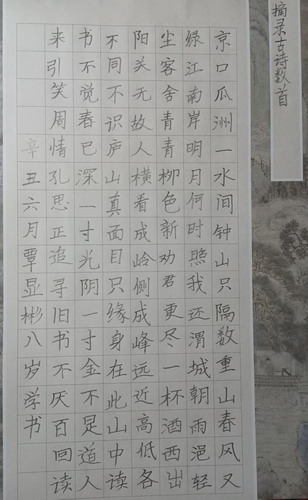 摘录古诗数首
京口瓜洲一水间钟山只隔数重山春风又
绿江南岸明月何时照我还渭城朝雨浥轻
尘客舍青青柳色新劝君更尽一杯酒西出
阳关无故人横看成岭侧成峰远近高低各
不同不识庐山真面目只缘身在此山中读
书不觉春已深一寸光阴一寸金不是道人
来引笑周情孔思正追寻旧书不厌百回读
辛丑六月覃显彬八岁学书